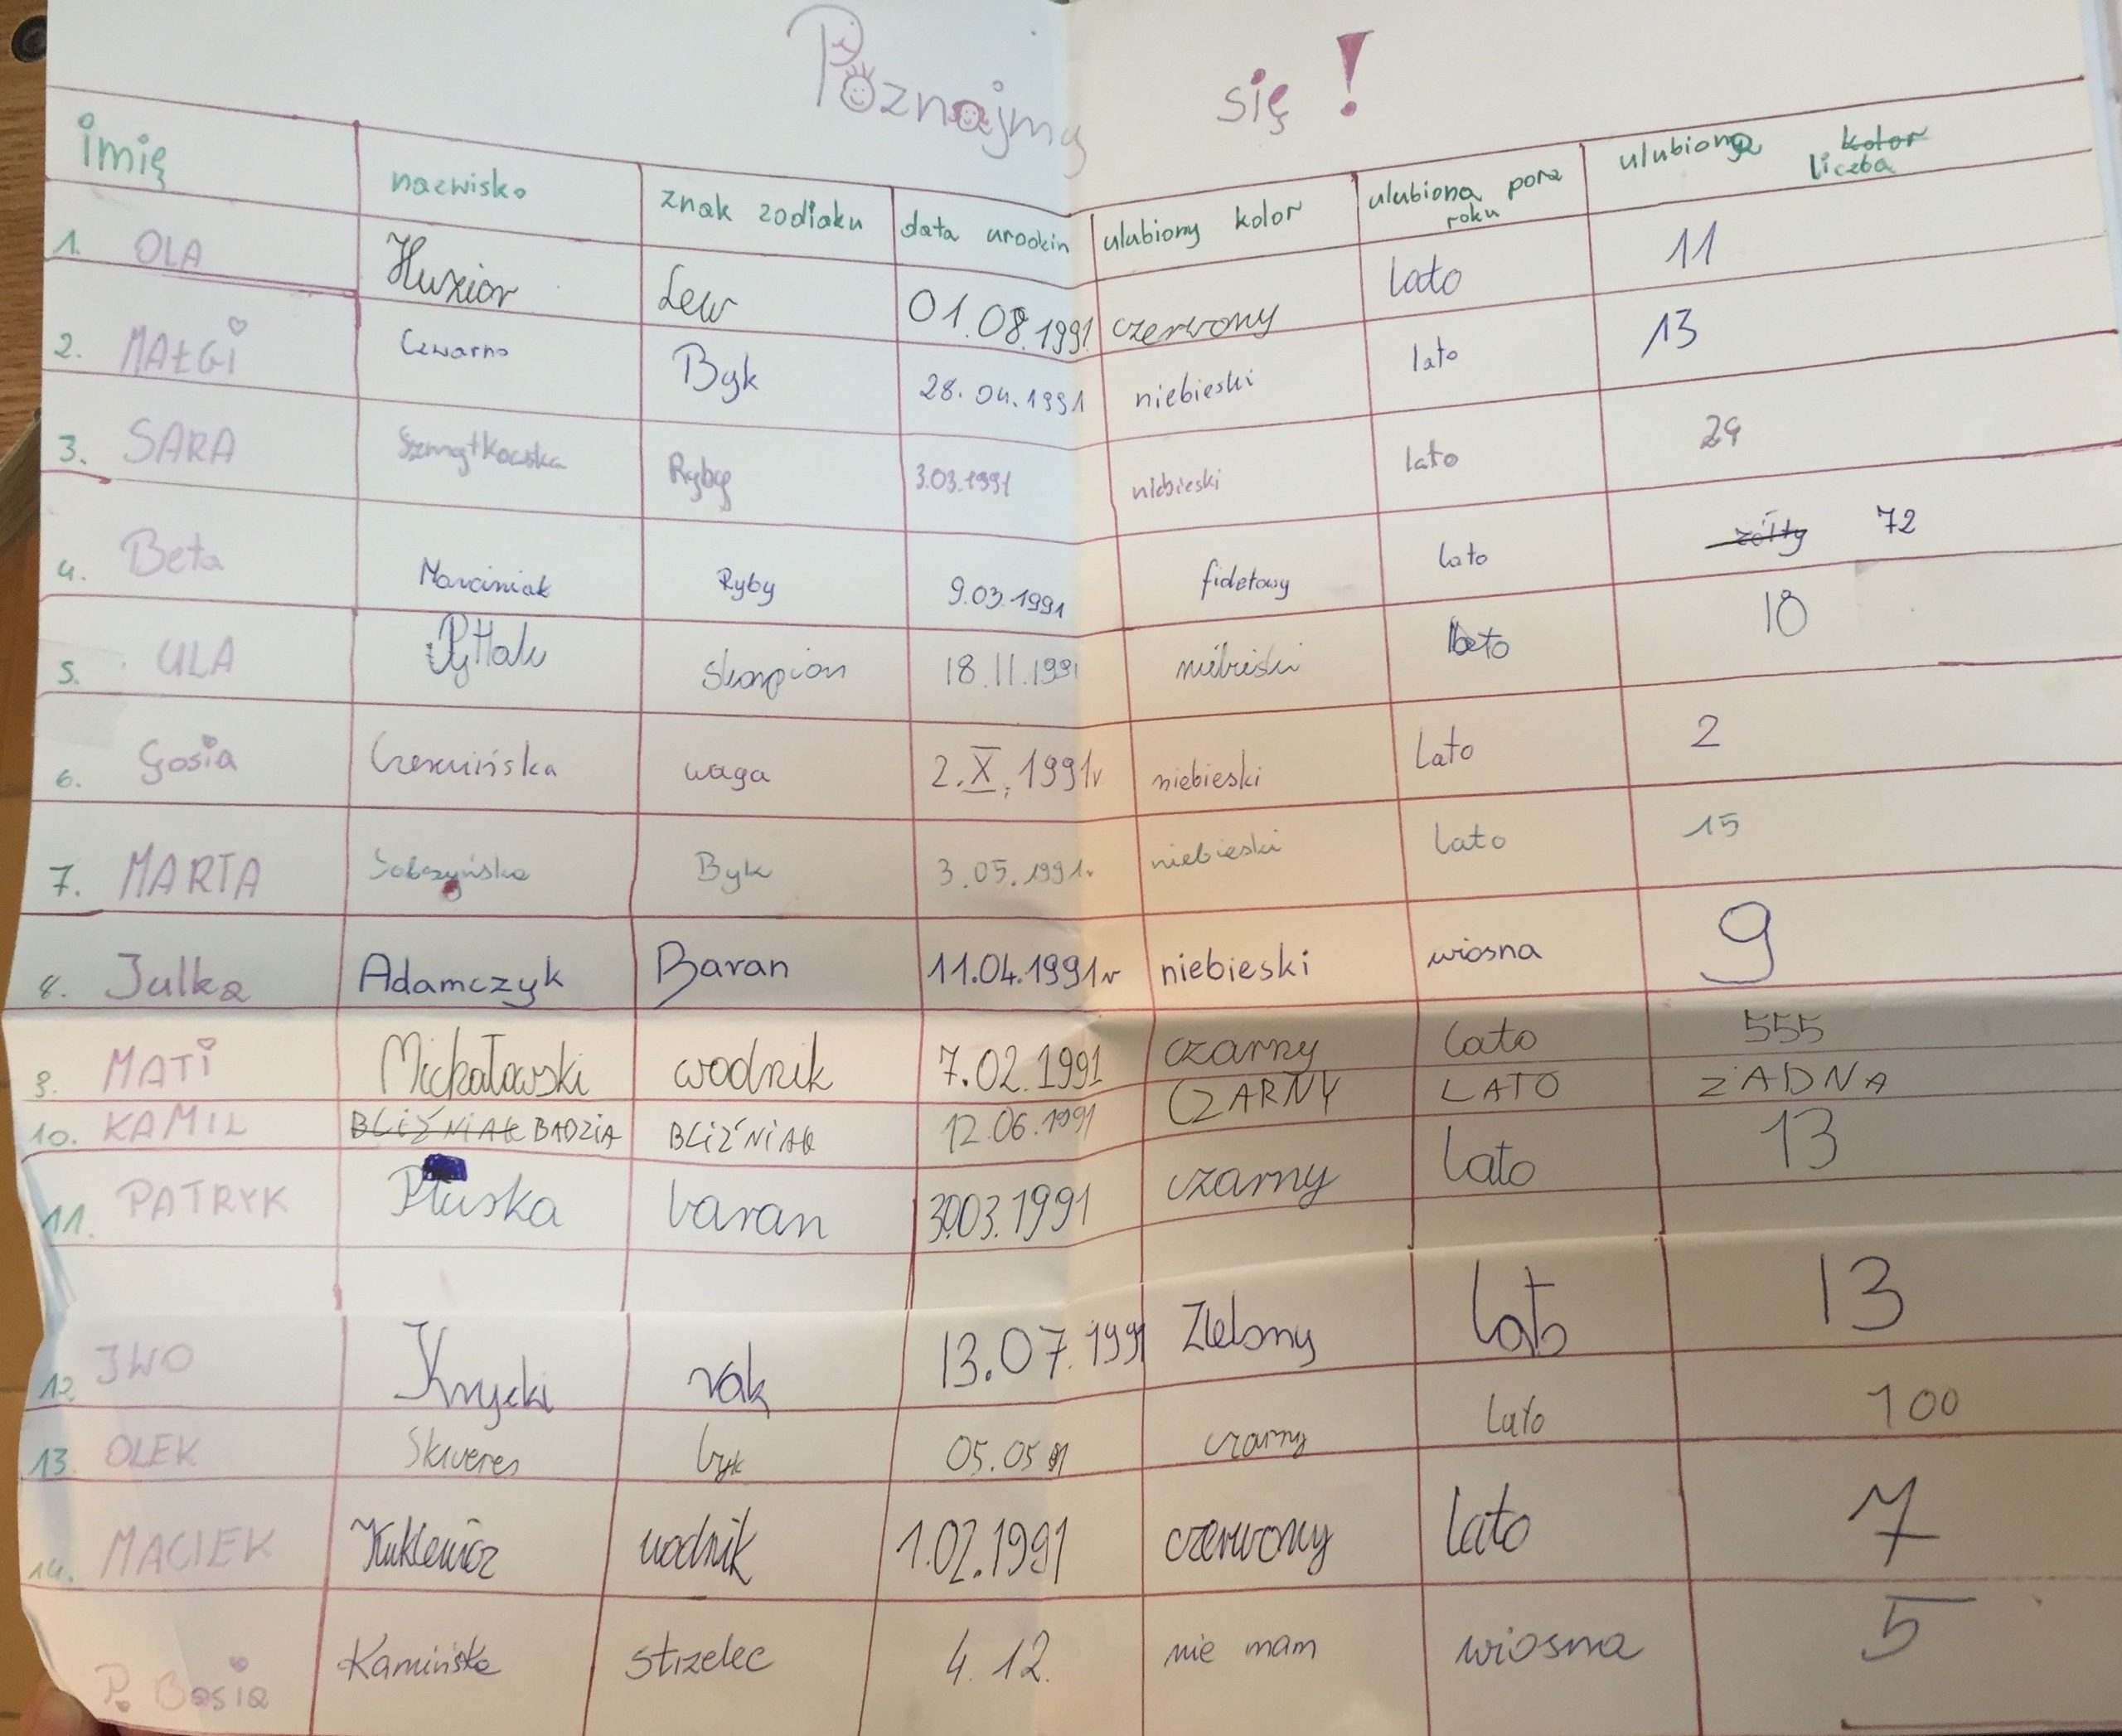 Poznajmy się!
imię nazwisko znak zodiaku data urodzin ulubiony kolor ulubiona pora roku ulubiona kolor liczba
1. OLA Huzior Lew 01.08.1991 czerwony lato 11
2. MAŁGi Czwarno Byk 28.04.1991 niebieski lato 13
3. SARA Szmytkowska Ryby 3.03.1991 niebieski lato 29
4. Beta Marciniak Ryby 9.03.1991 fioletowy lato żółty 72
5. ULA Pyttak skorpion 18.11.1991 niebieski lato 18
6. Gosia Czermińska waga 2.X.1991r niebieski lato 2
7. MARTA Sobczyńska Byk 3.05.1991r. niebieski lato 15
8. Julka Adamczyk Baran 11.04.1991r niebieski wiosna 9
9. MATi Michałowski wodnik 7.02.1991 czarny lato 555
10. KAMIL BLiŹNiAK BADZiA BLiŹNiAK 12.06.1991 CZARNY LATO ŻADNA
11. PATRYK Płuska baran 30.03.1991 czarny lato 13
12. IWO Krycki rak 13.07.1991 Zielony lato 13
13. OLEK Skweres byk 05.05.91 czarny lato 100
14. MACIEK Kuklewicz wodnik 1.02.1991 czerwony lato 7
P. Basia Kamińska strzelec 4.12. nie mam wiosna 5